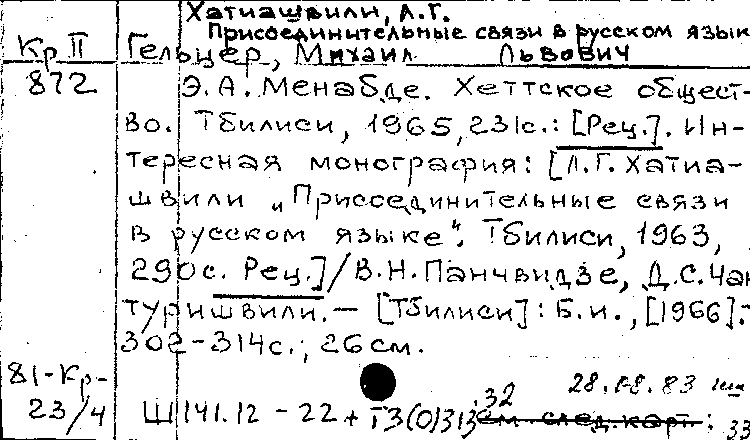 Хатиашвили, Л.Г.
Присоединительные связи в русском язык
Кр II Гельцер, Михаил Львович
872 Э.А. Менабде. Хеттское общест-
во. Тбилиси, 1965, 231с.: [Рец.]. Ин-
тересная монография: [Л.Г. Хатиа-
швили „Присоединительные связи
в русском языке". Тбилиси, 1963,
290с. Рец.]/В.Н. Панчвидзе, Д.С. Чан
туришвили. — [Тбилиси]: Б.и., [1966].-
302-314с.; 26см.
81-Кр-
23/4
28.08.83
Ш141.12-22 + Т3(0)313.32 см. след. карт.; 33